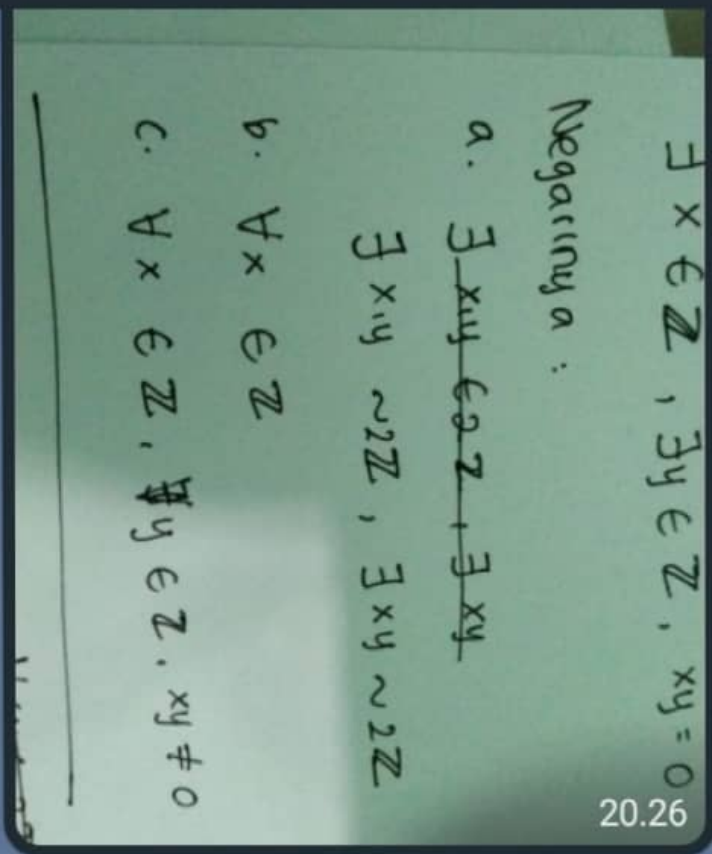 ∃ x ∈ ℤ, ∃y ∈ ℤ, xy = 0
Negasinya :
a. ∃ x,y ∈ 2ℤ, ∃ xy
∃ x,y ~2ℤ, ∃ xy ~ 2ℤ
b. ∀x ∈ ℤ
c. ∀x ∈ ℤ, ∀y ∈ ℤ. xy ≠ 0
20.26